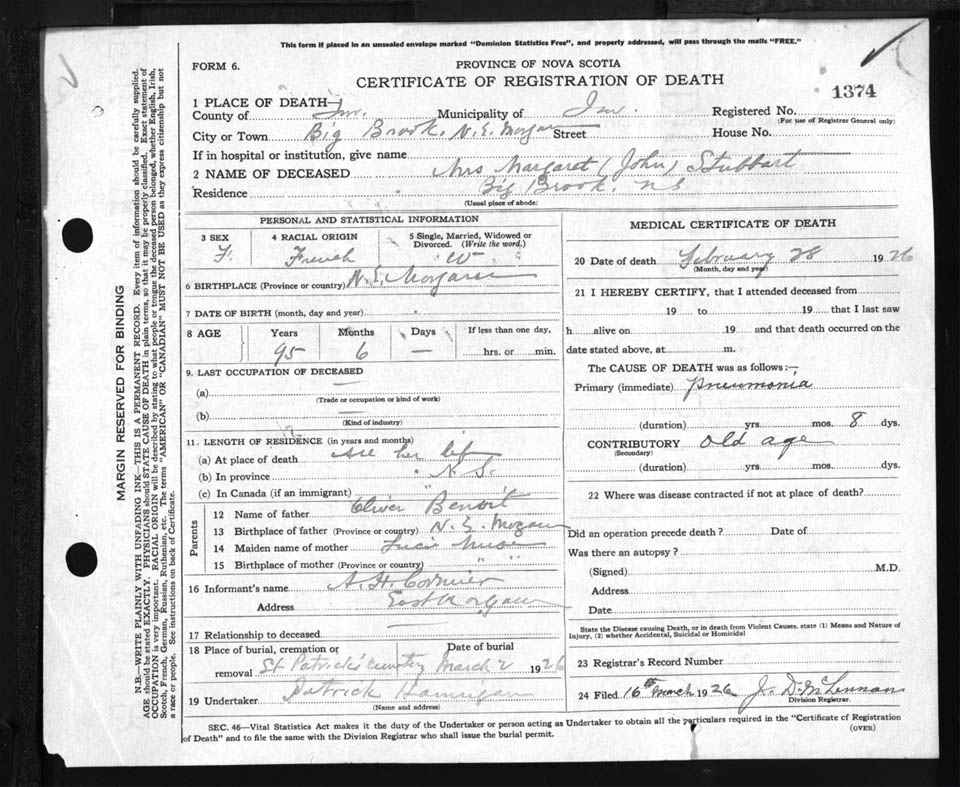 This form if placed in an unsealed envelope marked "Dominion Statistics Free", and properly addressed, will pass through the mails "FREE."
FORM 6.
PROVINCE OF NOVA SCOTIA
CERTIFICATE OF REGISTRATION OF DEATH
1374
1 PLACE OF DEATH—
County of Inv. Municipality of Inv. Registered No.
(For use of Registrar General only)
City or Town Big Brook. N.E. Morgan Street House No.
If in hospital or institution, give name
2 NAME OF DECEASED Mrs Margaret (John) Stubbart
Residence Big Brook. N S
(Usual place of abode)
PERSONAL AND STATISTICAL INFORMATION
3 SEX 4 RACIAL ORIGIN 5 Single, Married, Widowed or Divorced. (Write the word.)
F. French W
6 BIRTHPLACE (Province or country) N.E.
7 DATE OF BIRTH (month, day and year)
8 AGE Years Months Days If less than one day,
95 6 — hrs. or min.
9. LAST OCCUPATION OF DECEASED
(a) —
(Trade or occupation or kind of work)
(b) —
(Kind of industry)
11. LENGTH OF RESIDENCE (in years and months)
(a) At place of death All her life
(b) In province N. S.
(c) In Canada (if an immigrant)
Parents
12 Name of father Oliver Benoit
13 Birthplace of father (Province or country) N. E.
14 Maiden name of mother Lucie
15 Birthplace of mother (Province or country) " "
16 Informant's name A. H. Cormier
Address East
17 Relationship to deceased —
18 Place of burial, cremation or
removal St Patrick's cemetery March 2 1926
19 Undertaker Patrick Hannigan
(Name and address)
MEDICAL CERTIFICATE OF DEATH
20 Date of death February 28 1926
(Month, day and year)
21 I HEREBY CERTIFY, that I attended deceased from
19 to 19 that I last saw
h alive on 19 and that death occurred on the
date stated above, at m.
The CAUSE OF DEATH was as follows:—
Primary (immediate) Pneumonia
(duration) yrs. mos. 8 dys.
CONTRIBUTORY old age
(Secondary)
(duration) yrs. mos. dys.
22 Where was disease contracted if not at place of death?
Did an operation precede death? Date of
Was there an autopsy?
(Signed) M.D.
Address
Date
State the Disease causing Death, or in death from Violent Causes, state (1) Means and Nature of
Injury, (2) whether Accidental, Suicidal or Homicidal
23 Registrar's Record Number
24 Filed 16th March 1926 J. D. McLennan
Division Registrar.
SEC. 46—Vital Statistics Act makes it the duty of the Undertaker or person acting as Undertaker to obtain all the particulars required in the "Certificate of Registration
of Death" and to file the same with the Division Registrar who shall issue the burial permit.
(OVER)
MARGIN RESERVED FOR BINDING
N.B—WRITE PLAINLY WITH UNFADING INK—THIS IS A PERMANENT RECORD. Every item of information should be carefully supplied.
AGE should be stated EXACTLY. PHYSICIANS should STATE CAUSE OF DEATH in plain terms, so that it may be properly classified. Exact statement of
OCCUPATION is very important. RACIAL ORIGIN will be described by stating to what people or tongue the deceased person belonged, whether English, Irish,
Scotch, French, German, Russian, Ruthenian, etc. The terms "AMERICAN" OR "CANADIAN" MUST NOT BE USED as they express citizenship but not
a race or people. See instructions on back of Certificate.